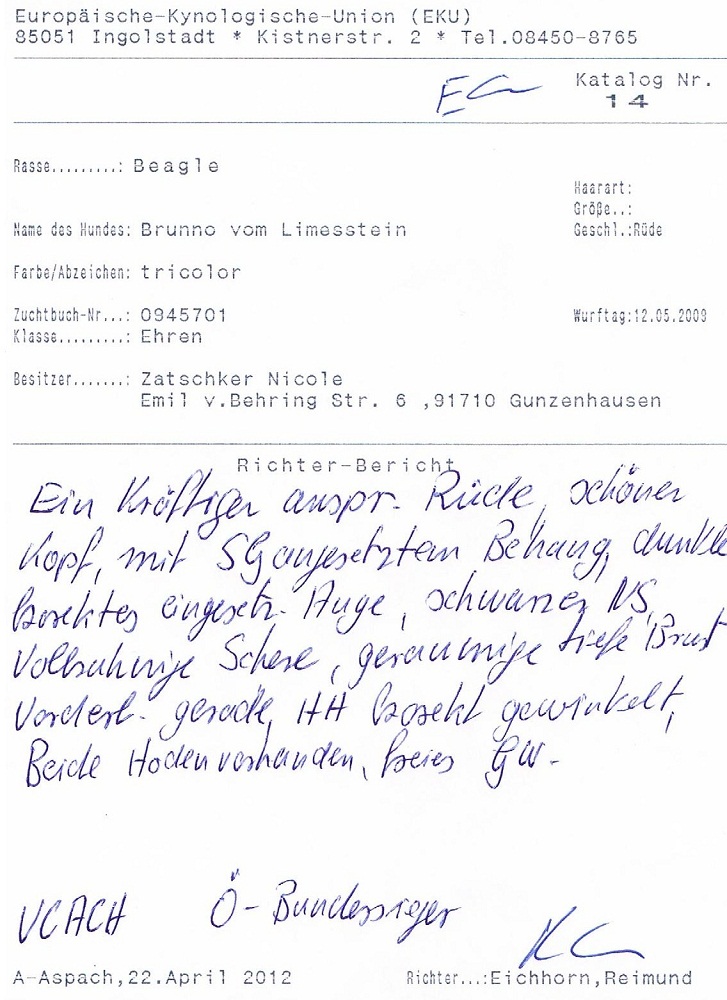 Europäische-Kynologische-Union (EKU)
85051 Ingolstadt * Kistnerstr. 2 * Tel.08450-8765
Katalog Nr.
14
Rasse.........: Beagle
Haarart:
Größe..:
Name des Hundes: Brunno vom Limesstein Geschl.:Rüde
Farbe/Abzeichen: tricolor
Zuchtbuch-Nr...: 0945701 Wurftag:12.05.2009
Klasse.........: Ehren
Besitzer.......: Zatschker Nicole
Emil v.Behring Str. 6 ,91710 Gunzenhausen
Richter-Bericht
Ein kräftiger anspr. Rüde, schöner
Kopf, mit SG angesetztem Behang, dunkle
korektes eingesetz. Auge, schwarzer NS,
Vollzahnige Schere, geräumige tiefe Brust
Vorderl. gerade, HH korekt gewinkelt,
Beide Hoden vorhanden, freies GW.
VCACH Ö-Bundessieger
A-Aspach,22.April 2012 Richter...:Eichhorn,Reimund